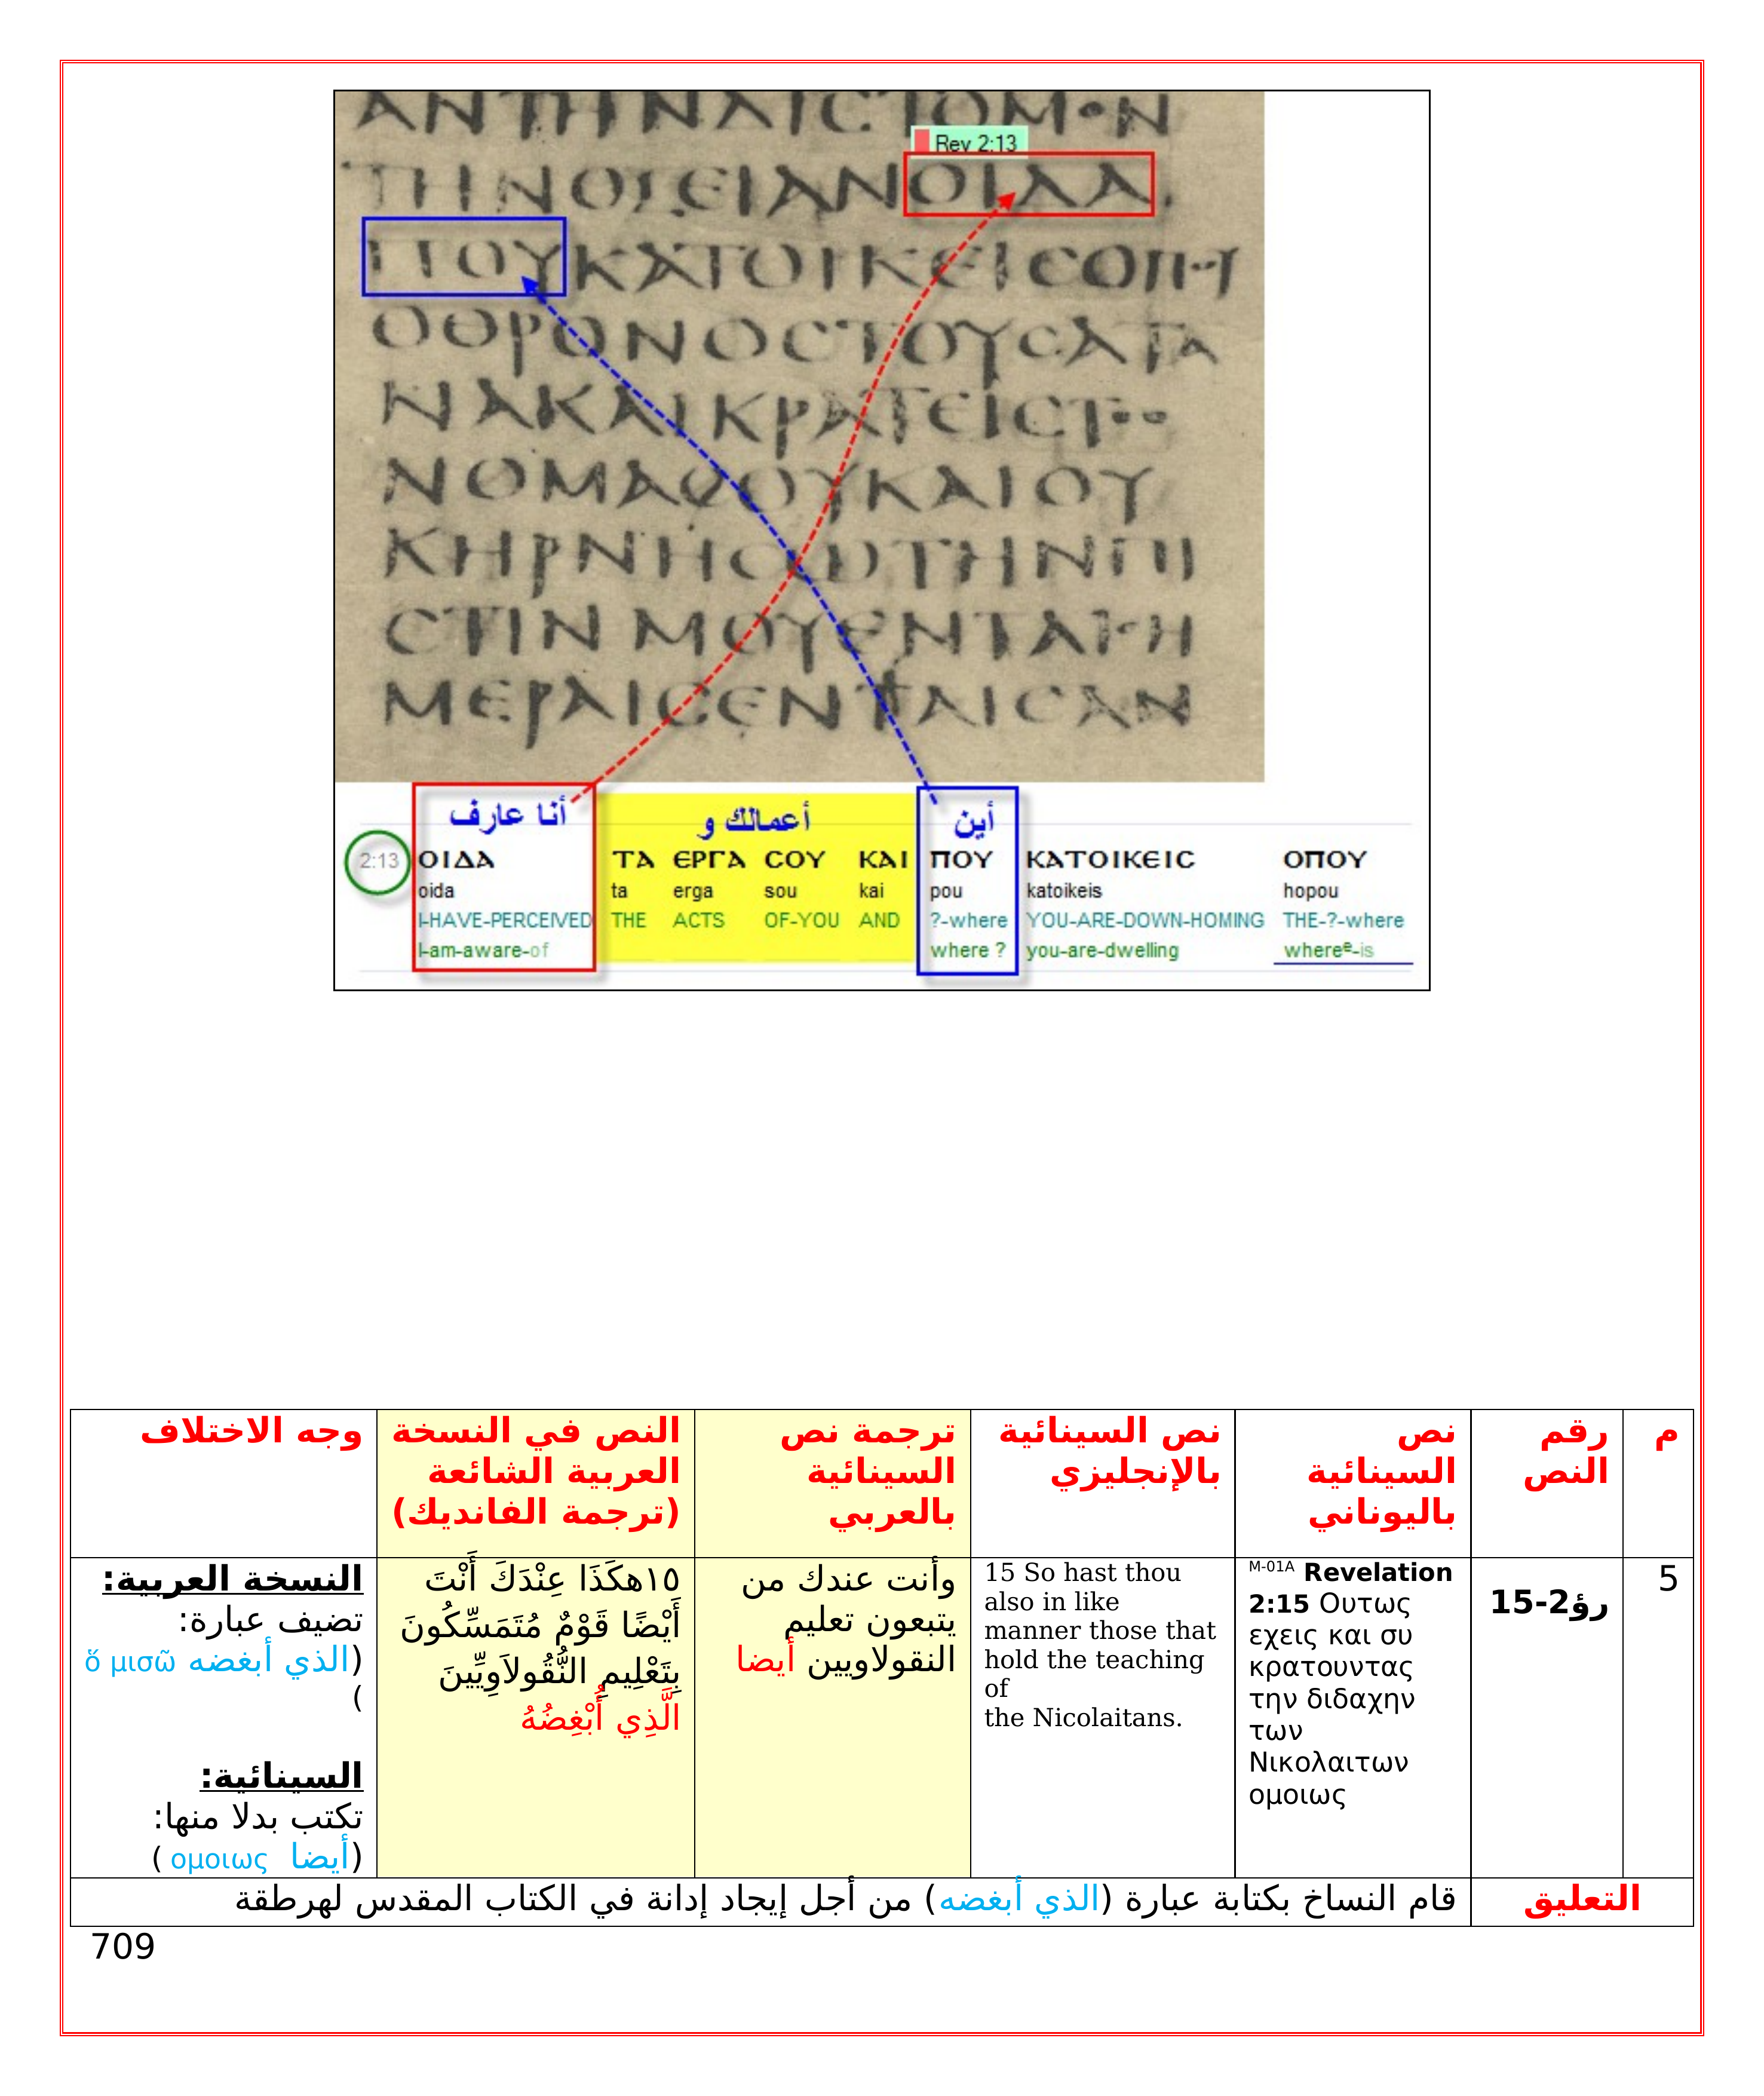 ΑΝΤΗΝΑΙϹΤΟΜ·Ν
Rev 2:13
ΤΗΝΟΞΕΙΑΝΟΙΔΑ
ΠΟΥΚΑΤΟΙΚΕΙϹΟΠ
ΟΘΡΟΝΟϹΤΟΥϹΑΤΑ
ΝΑΚΑΙΚΡΑΤΕΙϹΤ··
ΝΟΜΑϹΟΥΚΑΙΟΥ
ΚΗΡΝΗϹΩΤΗΝΠΙ
ϹΤΙΝΜΟΥΕΝΤΑΙ·Η
ΜΕΡΑΙϹΕΝΤΑΙϹΑΝ
أنا عارف أعمالك و أين
2:13 ΟΙΔΑ ΤΑ ΕΡΓΑ ϹΟΥ ΚΑΙ ΠΟΥ ΚΑΤΟΙΚΕΙϹ ΟΠΟΥ
oida ta erga sou kai pou katoikeis hopou
I-HAVE-PERCEIVED THE ACTS OF-YOU AND ?-where YOU-ARE-DOWN-HOMING THE-?-where
I-am-aware-of where ? you-are-dwelling whereᵉ-is
م
رقم
النص
نص
السينائية
باليوناني
نص السينائية
بالإنجليزي
ترجمة نص
السينائية
بالعربي
النص في النسخة
العربية الشائعة
(ترجمة الفانديك)
وجه الاختلاف
5
رؤ2-15
M-01A Revelation
2:15 Ουτως
εχεις και συ
κρατουντας
την διδαχην
των
Νικολαιτων
ομοιως
15 So hast thou
also in like
manner those that
hold the teaching
of
the Nicolaitans.
وأنت عندك من
يتبعون تعليم
النقولاويين أيضا
١٥هكَذَا عِنْدَكَ أَنْتَ
أَيْضًا قَوْمٌ مُتَمَسِّكُونَ
بِتَعْلِيمِ النُّقُولاَوِيِّينَ
الَّذِي أُبْغِضُهُ
النسخة العربية:
تضيف عبارة:
(الذي أبغضه ὅ μισῶ
)
السينائية:
تكتب بدلا منها:
(أيضا ομοιως )
التعليق
قام النساخ بكتابة عبارة (الذي أبغضه) من أجل إيجاد إدانة في الكتاب المقدس لهرطقة
709